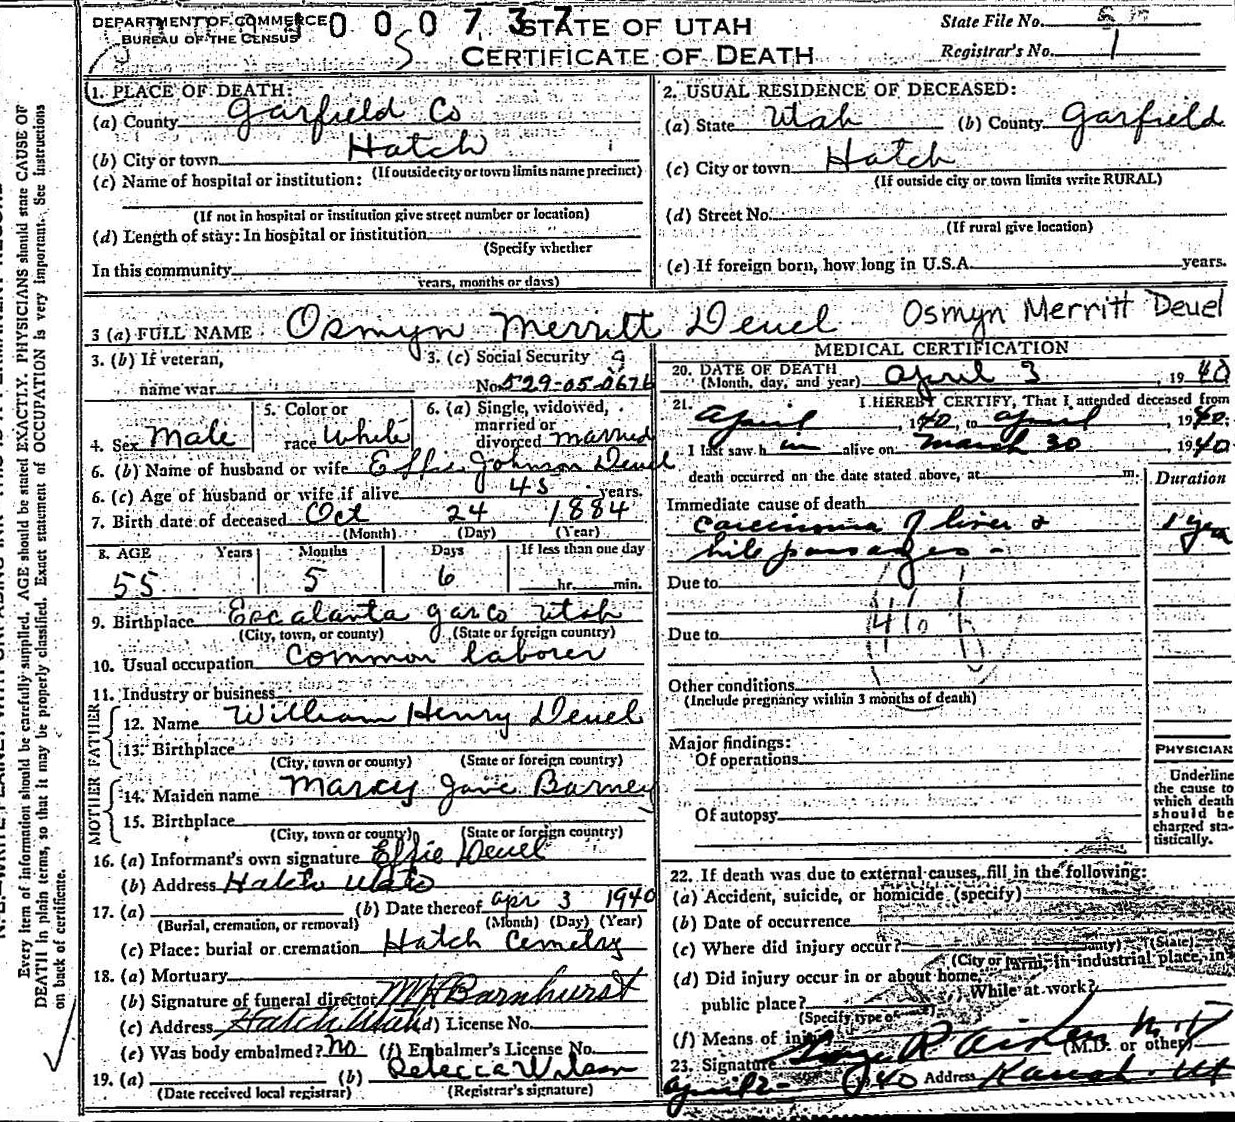 DEPARTMENT OF COMMERCE
BUREAU OF THE CENSUS
0 0 0 7 3 7
STATE OF UTAH
CERTIFICATE OF DEATH
State File No. 5
Registrar's No. 1
1. PLACE OF DEATH:
(a) County Garfield Co
(b) City or town Hatch
(If outside city or town limits name precinct)
(c) Name of hospital or institution:
(If not in hospital or institution give street number or location)
(d) Length of stay: In hospital or institution
(Specify whether
In this community
years, months or days)
2. USUAL RESIDENCE OF DECEASED:
(a) State Utah (b) County Garfield
(c) City or town Hatch
(If outside city or town limits write RURAL)
(d) Street No.
(If rural give location)
(e) If foreign born, how long in U.S.A. years.
3 (a) FULL NAME Osmyn Merritt Deuel Osmyn Merritt Deuel
3. (b) If veteran,
name war
3. (c) Social Security
No. 529-05-0676
4. Sex Male
5. Color or
race White
6. (a) Single, widowed,
married or
divorced married
6. (b) Name of husband or wife Effie Johnson Deuel
6. (c) Age of husband or wife if alive 45 years.
7. Birth date of deceased Oct 24 1884
(Month) (Day) (Year)
8. AGE Years Months Days If less than one day
55 5 6 hr. min.
9. Birthplace Escalanta Gar Co Utah
(City, town, or county) (State or foreign country)
10. Usual occupation Common laborer
11. Industry or business
FATHER
12. Name William Henry Deuel
13. Birthplace
(City, town or county) (State or foreign country)
MOTHER
14. Maiden name Marcy Jane Barney
15. Birthplace
(City, town or county) (State or foreign country)
16. (a) Informant's own signature Effie Deuel
(b) Address Hatch Utah
17. (a) (b) Date thereof Apr 3 1940
(Burial, cremation, or removal) (Month) (Day) (Year)
(c) Place: burial or cremation Hatch Cemetry
18. (a) Mortuary
(b) Signature of funeral director M H Barnhurst
(c) Address Hatch Utah (d) License No.
(e) Was body embalmed? No (f) Embalmer's License No.
19. (a) (b) Rebecca Wilson
(Date received local registrar) (Registrar's signature)
MEDICAL CERTIFICATION
20. DATE OF DEATH
(Month, day, and year) April 3, 1940
21. I HEREBY CERTIFY, That I attended deceased from
April, 1940, to April, 1940;
I last saw h im alive on March 30 1940
death occurred on the date stated above, at m.
Duration
Immediate cause of death
Carcinoma of liver & 1 yea
bile passages -
Due to
Due to
Other conditions
(Include pregnancy within 3 months of death)
Major findings:
Of operations
Of autopsy
PHYSICIAN
Underline
the cause to
which death
should be
charged sta-
tistically.
22. If death was due to external causes, fill in the following:
(a) Accident, suicide, or homicide (specify)
(b) Date of occurrence
(c) Where did injury occur?
(City or (State)
(d) Did injury occur in or about home, farm, in industrial place, in
public place? While at work?
(Specify type of
(f) Means of inj
23. Signature George R Aiken M.D
(M.D. or other)
April 2- 1940 Address Kanab. Ut
Every item of information should be carefully supplied. AGE should be stated EXACTLY. PHYSICIANS should state CAUSE OF
DEATH in plain terms, so that it may be properly classified. Exact statement of OCCUPATION is very important. See instructions
on back of certificate.